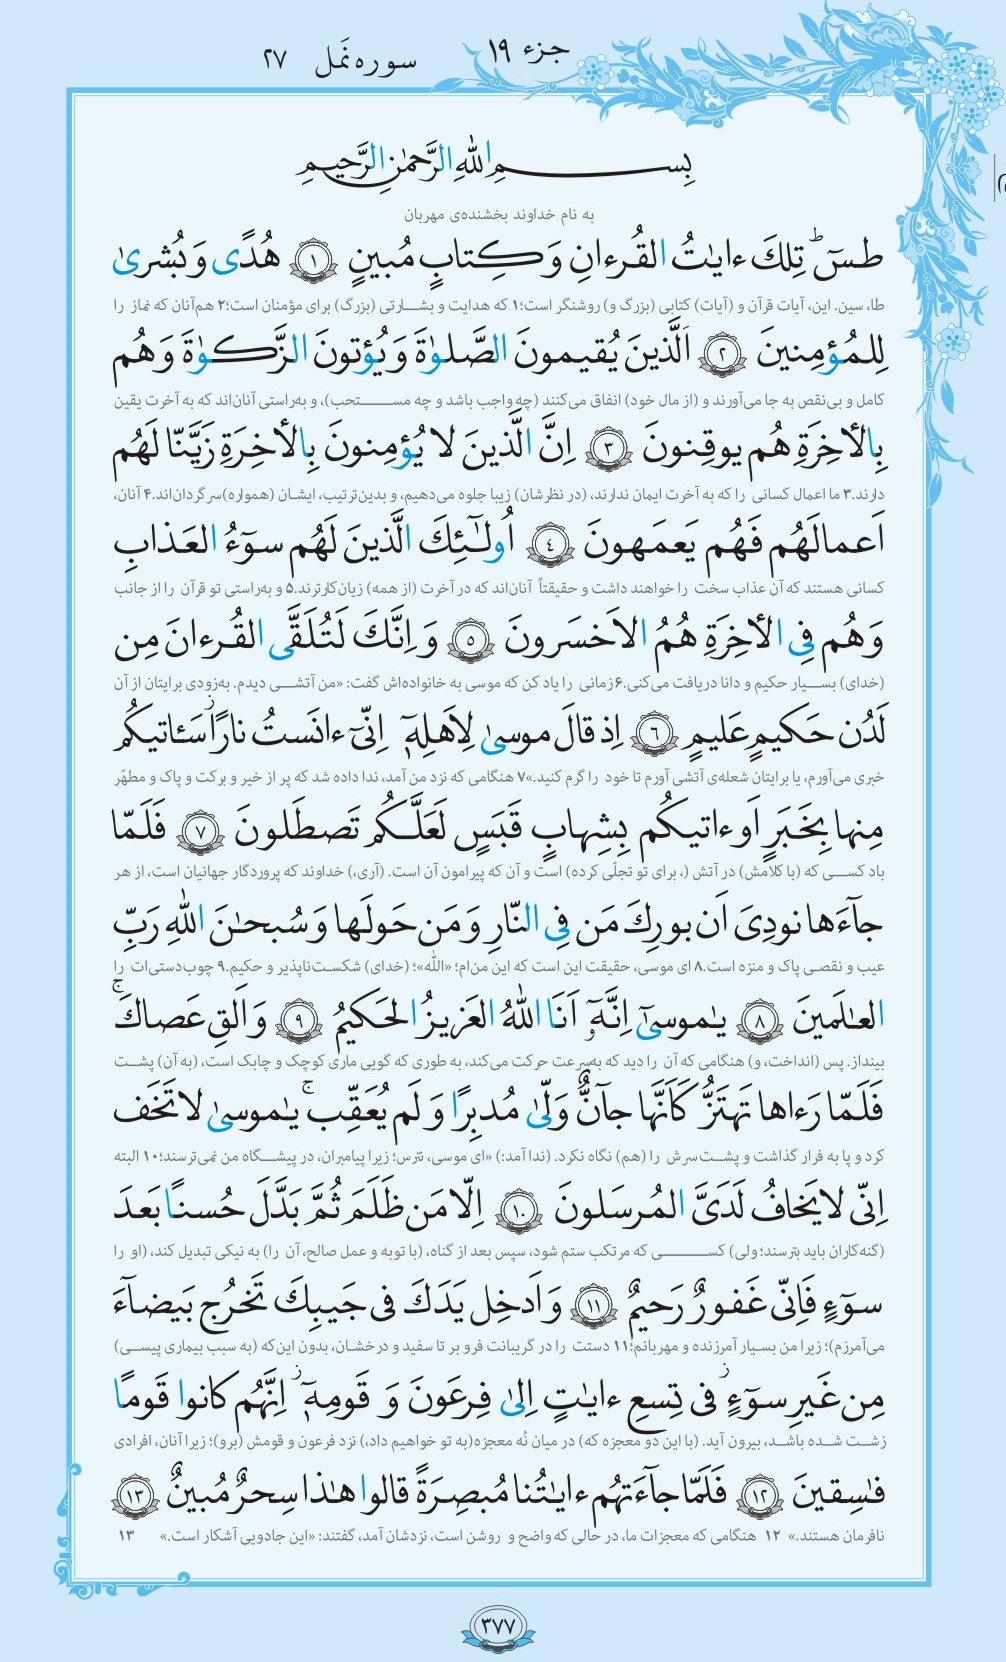 جزء ۱۹
سوره نَمل ۲۷
بِسمِ اللهِ الرَّحمٰنِ الرَّحيمِ
به نام خداوند بخشنده‌ی مهربان
طسٓ ۚ تِلكَ ءايٰتُ القُرءانِ وَ كِتابٍ مُبينٍ ﴿۱﴾ هُدًى وَ بُشرىٰ
طا، سین. این، آیات قرآن و (آیات) کتابی (بزرگ و) روشنگر است؛۱ که هدایت و بشارتی (بزرگ) برای مؤمنان است؛۲ هم‌آنان که نماز را
لِلمُؤمِنينَ ﴿۲﴾ اَلَّذينَ يُقيمونَ الصَّلوٰةَ وَ يُؤتونَ الزَّكوٰةَ وَ هُم
کامل و بی‌نقص به جا می‌آورند و (از مال خود) انفاق می‌کنند (چه واجب باشد و چه مستحب)، و به‌راستی آنان‌اند که به آخرت یقین
بِالأخِرَةِ هُم يوقِنونَ ﴿۳﴾ اِنَّ الَّذينَ لا يُؤمِنونَ بِالأخِرَةِ زَيَّنّا لَهُم
دارند.۳ ما اعمال کسانی را که به آخرت ایمان ندارند، (در نظرشان) زیبا جلوه می‌دهیم، و بدین‌ترتیب، ایشان (همواره) سرگردان‌اند.۴ آنان،
اَعمالَهُم فَهُم يَعمَهونَ ﴿۴﴾ اُولٰٓئِكَ الَّذينَ لَهُم سوٓءُ العَذابِ
کسانی هستند که آن عذاب سخت را خواهند داشت و حقیقتاً آنان‌اند که در آخرت (از همه) زیان‌کارترند.۵ و به‌راستی تو قرآن را از جانب
وَ هُم فِى الأخِرَةِ هُمُ الاَخسَرونَ ﴿۵﴾ وَ اِنَّكَ لَتُلَقَّى القُرءانَ مِن
(خدای) بسیار حکیم و دانا دریافت می‌کنی.۶ زمانی را یاد کن که موسی به خانواده‌اش گفت: «من آتشی دیدم. به‌زودی برایتان از آن
لَدُن حَكيمٍ عَليمٍ ﴿۶﴾ اِذ قالَ موسىٰ لِاَهلِهٓ اِنّىٓ ءانَستُ نارًا سَـٔاتيكُم
خبری می‌آورم، یا برایتان شعله‌ی آتشی آورم تا خود را گرم کنید.»۷ هنگامی که نزد من آمد، ندا داده شد که پر از خیر و برکت و پاک و مطهّر
مِنها بِخَبَرٍ اَو ءاتيكُم بِشِهابٍ قَبَسٍ لَعَلَّكُم تَصطَلونَ ﴿۷﴾ فَلَمّا
باد کسی که (با کلامش) در آتش (، برای تو تجلّی کرده) است و آن که پیرامون آن است. (آری،) خداوند که پروردگار جهانیان است، از هر
جآءَها نودِىَ اَن بورِكَ مَن فِى النّارِ وَ مَن حَولَها وَ سُبحٰنَ اللهِ رَبِّ
عیب و نقصی پاک و منزه است.۸ ای موسی، حقیقت این است که این من‌ام؛ «اللّه»؛ (خدای) شکست‌ناپذیر و حکیم.۹ چوب‌دستی‌ات را
العٰلَمينَ ﴿۸﴾ يٰموسىٰٓ اِنَّهٓ اَنَا اللهُ العَزيزُ الحَكيمُ ﴿۹﴾ وَ اَلقِ عَصاكَ ۚ
بینداز. پس (انداخت، و) هنگامی که آن را دید که به‌سرعت حرکت می‌کند، به طوری که گویی ماری کوچک و چابک است، (به آن) پشت
فَلَمّا رَءاها تَهتَزُّ كَاَنَّها جآنٌّ وَلّىٰ مُدبِرًا وَ لَم يُعَقِّب ۚ يٰموسىٰ لا تَخَف
کرد و پا به فرار گذاشت و پشت‌سرش را (هم) نگاه نکرد. (ندا آمد:) «ای موسی، نترس؛ زیرا پیامبران، در پیشگاه من نمی‌ترسند؛۱۰ البته
اِنّى لا يَخافُ لَدَىَّ المُرسَلونَ ﴿۱۰﴾ اِلّا مَن ظَلَمَ ثُمَّ بَدَّلَ حُسنًا بَعدَ
(گنه‌کاران باید بترسند؛ ولی) کسی که مرتکب ستم شود، سپس بعد از گناه، (با توبه و عمل صالح، آن را) به نیکی تبدیل کند، (او را
سوٓءٍ فَاِنّى غَفورٌ رَحيمٌ ﴿۱۱﴾ وَ اَدخِل يَدَكَ فى جَيبِكَ تَخرُج بَيضآءَ
می‌آمرزم)؛ زیرا من بسیار آمرزنده و مهربانم؛۱۱ دستت را در گریبانت فرو بر تا سفید و درخشان، بدون این‌که (به سبب بیماری پیسی)
مِن غَيرِ سوٓءٍ ۖ فى تِسعِ ءايٰتٍ اِلىٰ فِرعَونَ وَ قَومِهٓ ۚ اِنَّهُم كانوا قَومًا
زشت شده باشد، بیرون آید. (با این دو معجزه که) در میان نُه معجزه (به تو خواهیم داد،) نزد فرعون و قومش (برو)؛ زیرا آنان، افرادی
فاسِقينَ ﴿۱۲﴾ فَلَمّا جآءَتهُم ءايٰتُنا مُبصِرَةً قالوا هٰذا سِحرٌ مُبينٌ ﴿۱۳﴾
نافرمان هستند.» ۱۲ هنگامی که معجزات ما، در حالی که واضح و روشن است، نزدشان آمد، گفتند: «این جادویی آشکار است.» ۱۳
۳۷۷